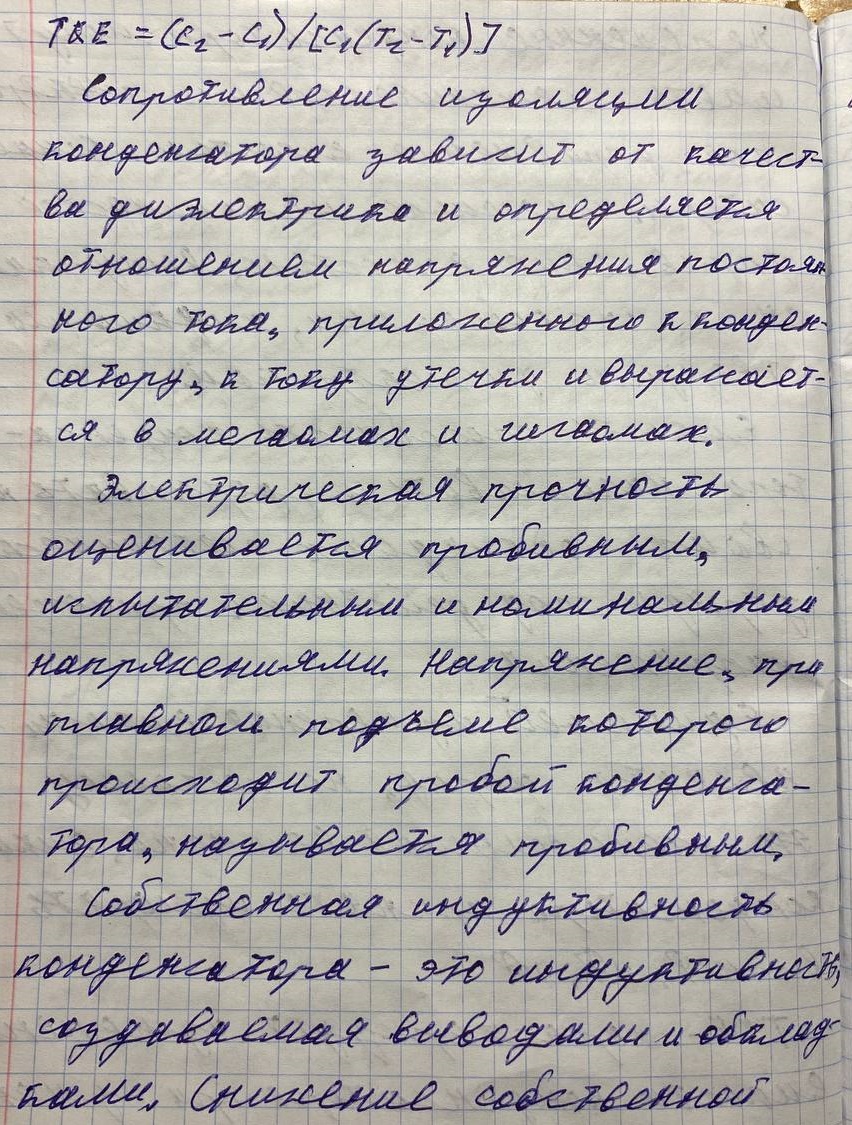 ТКЕ = (С₂ – С₁) / [С₁(Т₂ – Т₁)]
Сопротивление изоляции
конденсатора зависит от качест-
ва диэлектрика и определяется
отношением напряжения постоян-
ного тока, приложенного к конден-
сатору, к току утечки и выражает-
ся в мегаомах и гигаомах.
Электрическая прочность
оценивается пробивным,
испытательным и номинальным
напряжениями. Напряжение, при
плавном подъеме которого
происходит пробой конденса-
тора, называется пробивным.
Собственная индуктивность
конденсатора – это индуктивность,
создаваемая выводами и обклад-
ками. Снижение собственной